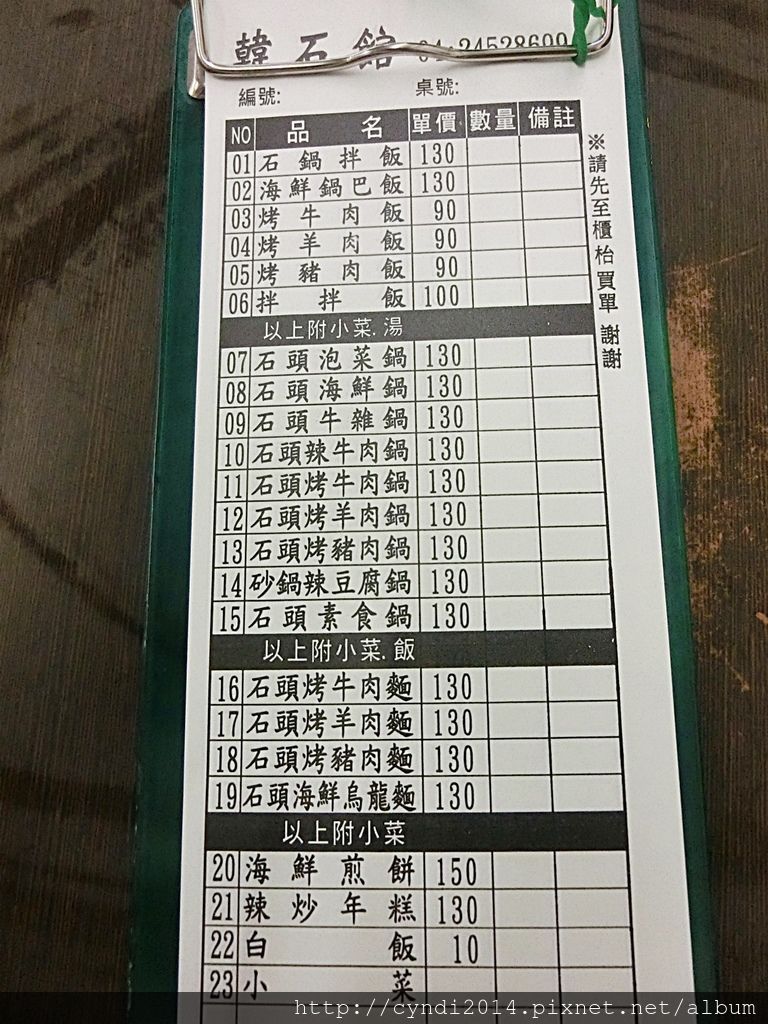 韓石館 04-24528699
編號: 桌號:
NO 品名 單價 數量 備註
01 石鍋拌飯 130
02 海鮮鍋巴飯 130
03 烤牛肉飯 90
04 烤羊肉飯 90
05 烤豬肉飯 90
06 拌拌飯 100
以上附小菜.湯
07 石頭泡菜鍋 130
08 石頭海鮮鍋 130
09 石頭牛雜鍋 130
10 石頭辣牛肉鍋 130
11 石頭烤牛肉鍋 130
12 石頭烤羊肉鍋 130
13 石頭烤豬肉鍋 130
14 砂鍋辣豆腐鍋 130
15 石頭素食鍋 130
以上附小菜.飯
16 石頭烤牛肉麵 130
17 石頭烤羊肉麵 130
18 石頭烤豬肉麵 130
19 石頭海鮮烏龍麵 130
以上附小菜
20 海鮮煎餅 150
21 辣炒年糕 130
22 白飯 10
23 小菜
※請先至櫃枱買單 謝謝
http://cyndi2014.pixnet.net/album